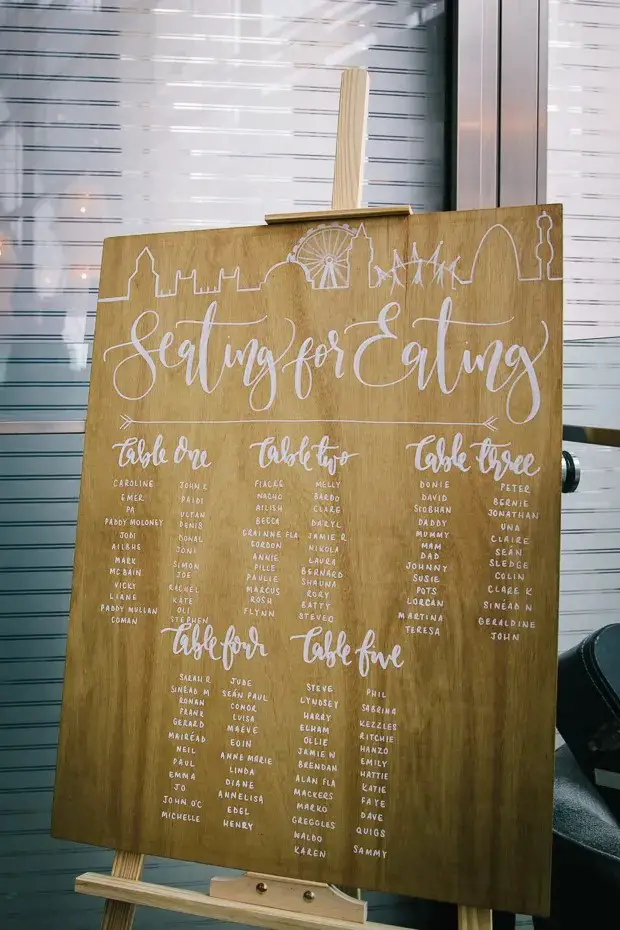 Seating for Eating
Table One
CAROLINE
EMER
PA
PADDY MOLONEY
JODI
AILBHE
MARK
MC BAIN
VICKY
LIANE
PADDY MULLAN
COMAN
JOHN K
PAIDI
VULTAN
DENIS
DONAL
JONI
SIMON
JOE
RACHEL
KATE
OLI
STEPHEN
Table two
FIACRE
NACHO
AILISH
BECCA
GRAINNE FLA
GORDON
ANNIE
PILLE
PAULIE
MARCUS
ROSH
FLYNN
MELLY
BARDO
CLARE
DARYL
JAMIE R
NIKOLA
LAURA
BERNARD
SHAUNA
RORY
BATTY
STEVO
Table three
DONIE
DAVID
SIOBHAN
DADDY
MUMMY
MAM
DAD
JOHNNY
SUSIE
POTS
LORCAN
MARTINA
TERESA
PETER
BERNIE
JONATHAN
UNA
CLAIRE
SEÁN
SLEDGE
COLIN
CLARE K
SINEAD N
GERALDINE
JOHN
Table four
SARAH R
SINEAD M
RONAN
FRANK
GERARD
MAIRÉAD
NEIL
PAUL
EMMA
JO
JOHN O'C
MICHELLE
JUDE
SEÁN PAUL
CONOR
LUISA
MAEVE
EOIN
ANNE MARIE
LINDA
DIANE
ANNELISA
EDEL
HENRY
Table five
STEVE
LYNDSEY
HARRY
ELHAM
OLLIE
JAMIE W
BRENDAN
ALAN FLA
MACKERS
MARKO
GREGGLES
WALDO
KAREN
PHIL
SABRINA
KEZZLES
RITCHIE
HANZO
EMILY
HATTIE
KATIE
FAYE
DAVE
QUIGS
SAMMY